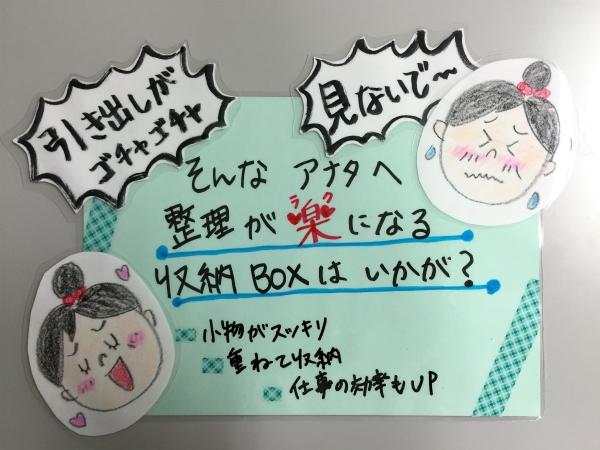 引き出しが
ゴチャゴチャ
見ないで〜
そんな アナタへ
ラク
整理が楽になる
収納BOXは いかが?
小物がスッキリ
重ねて収納
仕事の効率もUP